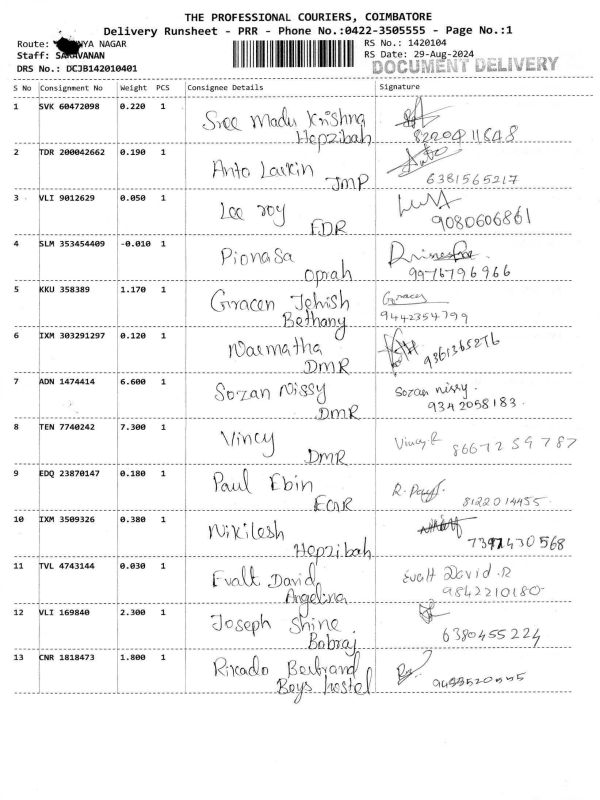 THE PROFESSIONAL COURIERS, COIMBATORE
Delivery Runsheet - PRR - Phone No.:0422-3505555 - Page No.:1
Route: NYA NAGAR
RS No.: 1420104
Staff: SARAVANAN
RS Date: 29-Aug-2024
DRS No.: DCJB142010401
DOCUMENT DELIVERY
S No Consignment No Weight PCS Consignee Details Signature
1 SVK 60472098 0.220 1 Sree Madu Krishna
Hepzibah 8220411648
2 TDR 200042662 0.190 1 Anto Larkin Anto
JMP 6381565217
3 VLI 9012629 0.050 1 Lee roy
EDR 9080606861
4 SLM 353454409 -0.010 1 Pionasa
Oprah 9976796966
5 KKU 358389 1.170 1 Gracen Jehish Gracen
Bethany 9442354799
6 IXM 303291297 0.120 1 Narmatha
DMR 9361365276
7 ADN 1474414 6.600 1 Sozan Nissy Sozan nissy.
DMR 9342058183.
8 TEN 7740242 7.300 1 Vincy Vincy R
DMR 8667259787
9 EDQ 23870147 0.180 1 Paul Ebin
ECNR 8122014455
10 IXM 3509326 0.380 1 Nikilesh
Hepzibah 7397430568
11 TVL 4743144 0.030 1 Evalt David Evalt David .R
Angelina 9842210180
12 VLI 169840 2.300 1 Joseph Shine
Bobraj 6380455224
13 CNR 1818473 1.800 1 Rikado Bertrand
Boys hostel